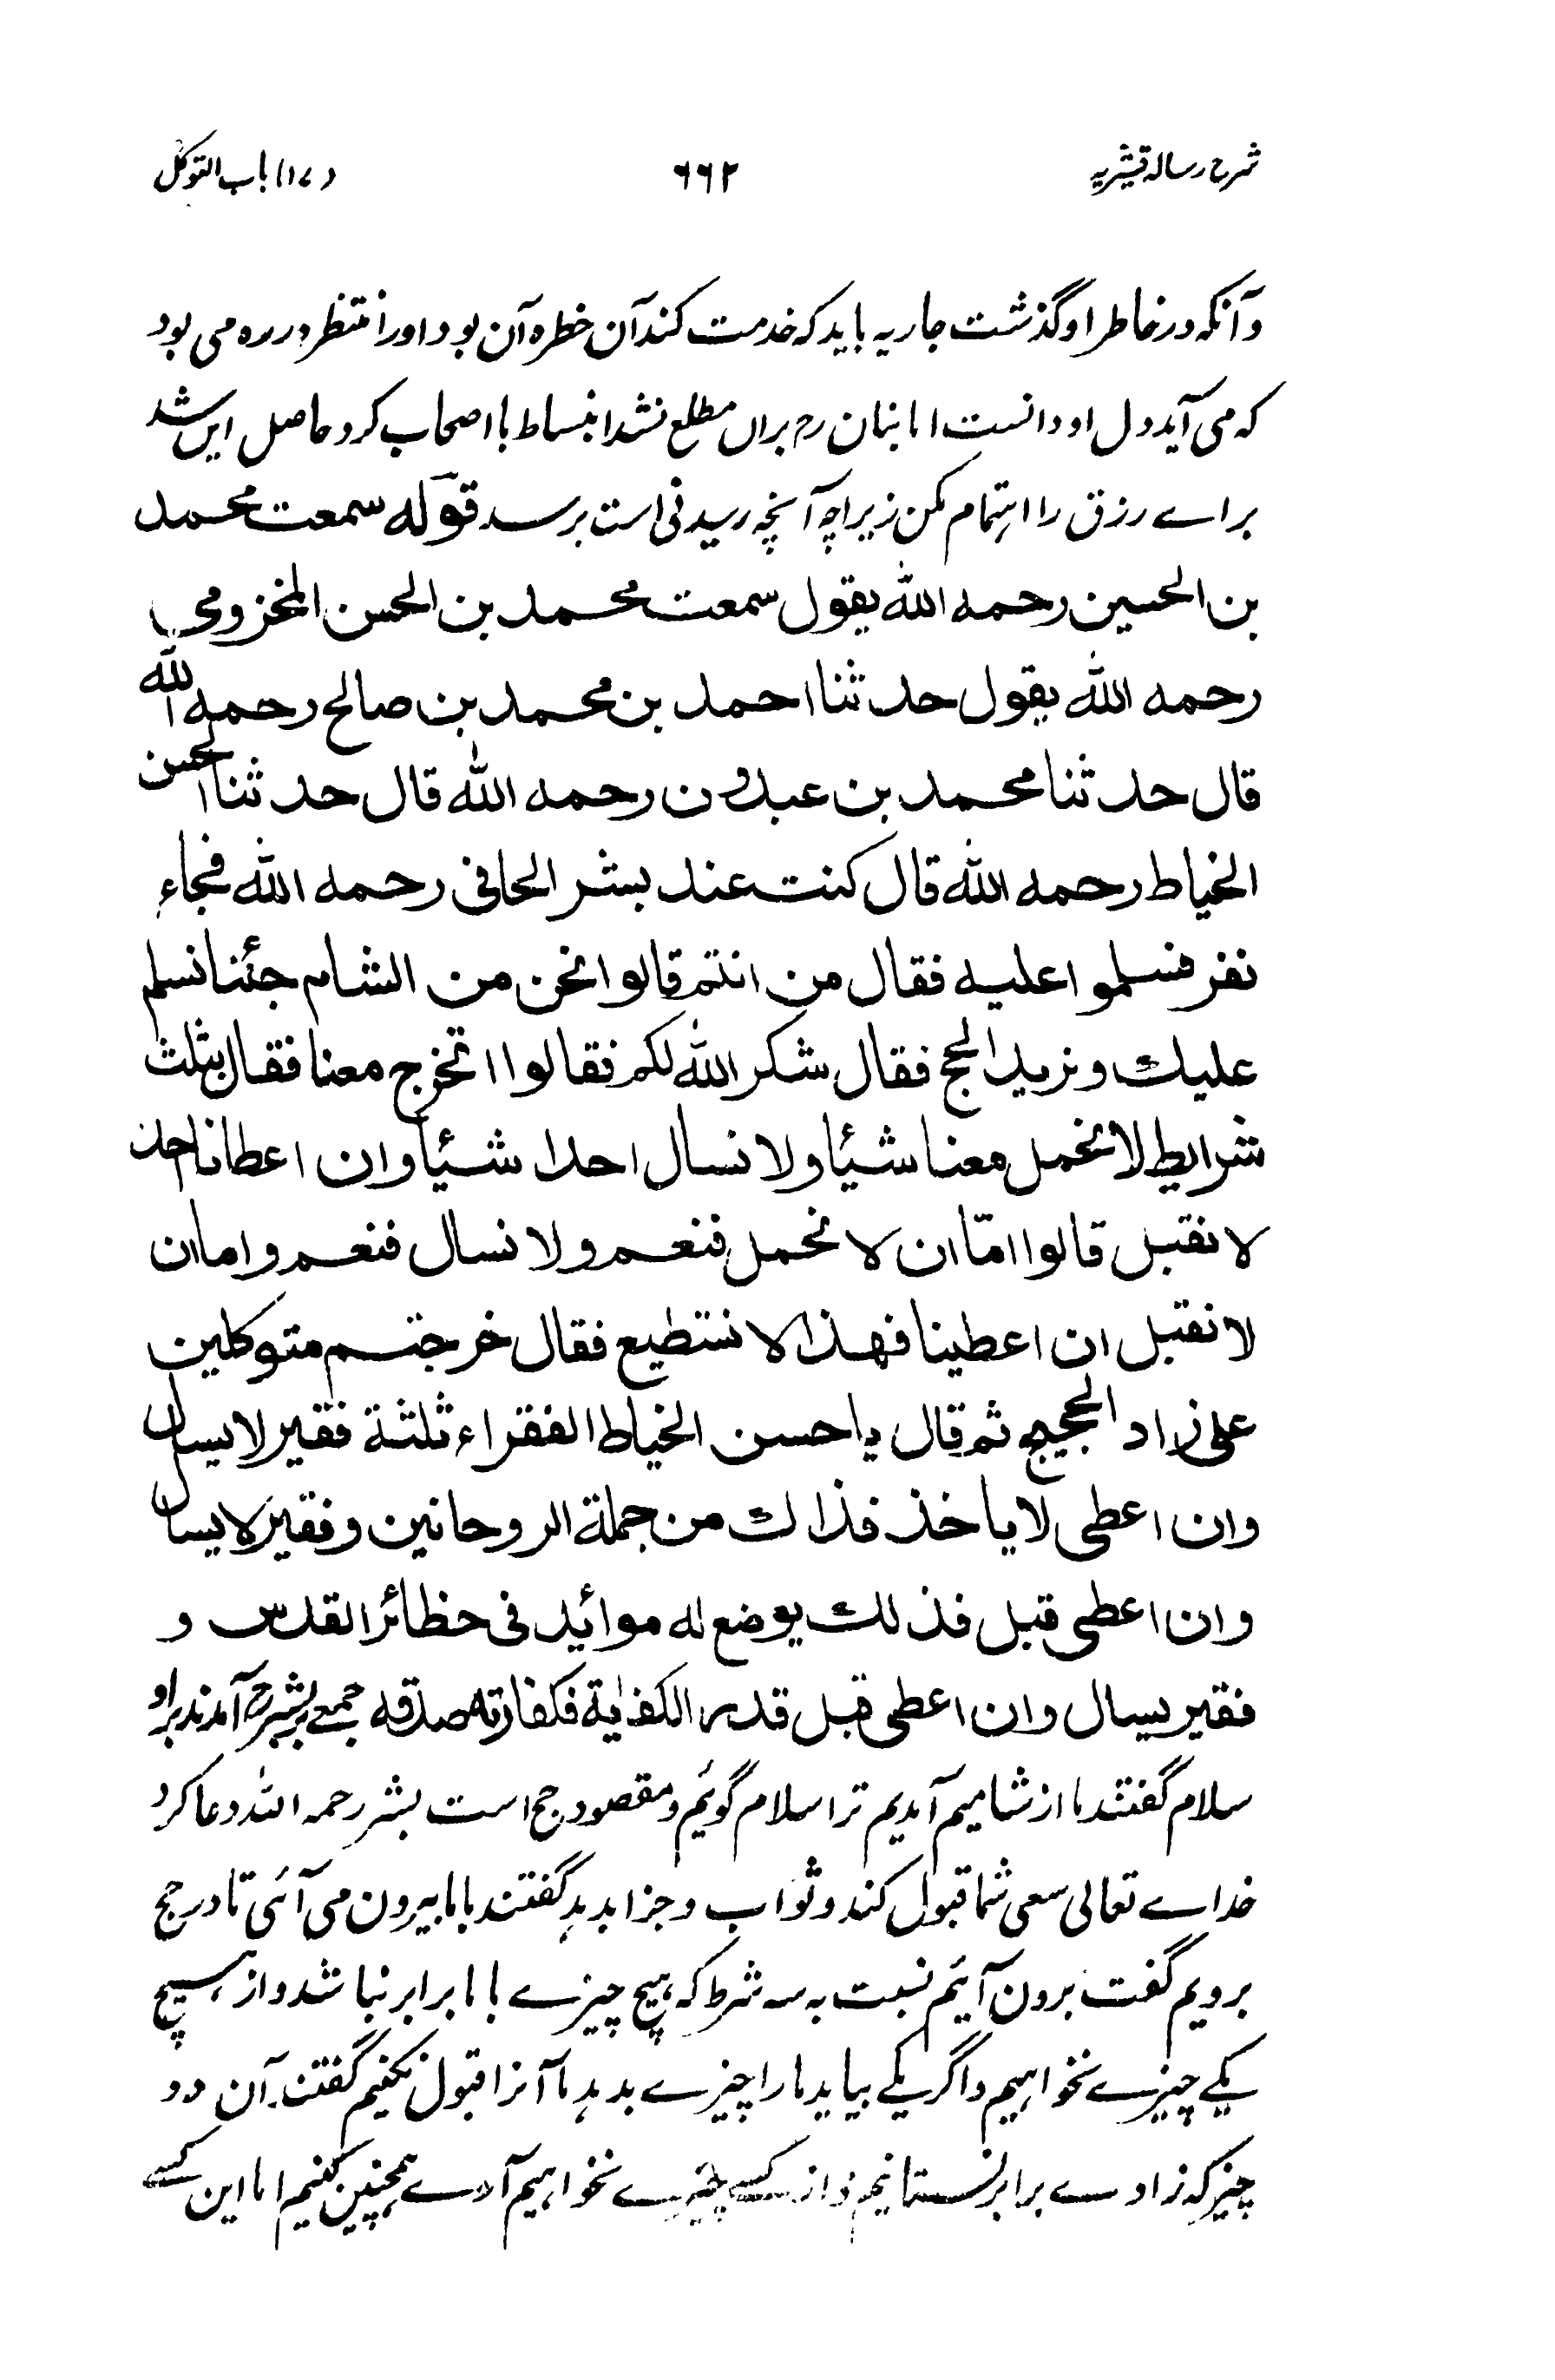 شرح رسالہ قشیریہ
۶۶۲
(۱۷) باب التوکل
وآنکه در خاطر او گذشت جاریه باید که خدمت کند آن خطره آن بود اورا منتظر در ره می بود
که می آید دل او دانست اما بنان رح بران مطلع نشد انبساط با اصحاب کرد حاصل این شد
براے رزق را اہتمام مکن زیراچه آنچه رسیدنی است برسد قوله سمعت محمد
بن الحسین رحمه الله یقول سمعت محمد بن الحسن المخزومی
رحمه الله یقول حدثنا احمد بن محمد بن صالح رحمه الله
قال حدثنا محمد بن عبدون رحمه الله قال حدثنا الحسن
الخیاط رحمه الله قال کنت عند بشر الحافی رحمه الله فجاء
نفر فسلموا علیه فقال من انتم قالوا نحن من الشام جئنا نسلم
علیك و نرید الحج فقال شکر الله لکم فقالوا اتخرج معنا فقال بثلث
شرایط لا نحمل معنا شیئا ولا نسال احدا شیئا وان اعطانا احد
لا نقبل قالوا امّا ان لا نحمل فنعم ولا نسال فنعم واما ان
لا نقبل ان اعطینا فهذا لا نستطیع فقال خرجتم متوکلین
علی زاد الحجیج ثم قال یا حسن الخیاط الفقراء ثلثة فقیر لا یسال
وان اعطی لا یاخذ فذالك من جملة الروحانین وفقیر لا یسال
وان اعطی قبل فذلك یوضع له موائد فی حظائر القدس و
فقیر یسال وان اعطی قبل قدر الکفایة فکفارته صدقه جمعے بر بشر رح آمدند بر او
سلام گفتند ما از شامیم آمدیم ترا سلام گوئیم و مقصود حج است بشر رحمه الله دعا کرد
خداے تعالی سعی شما قبول کند و ثواب و جزا بدہد گفتند با ما بیرون می آئی تا در حج
برویم گفت برون آئیم نسبت به سه شرط که ہیچ چیزے با ما برابر نباشد و از ہیچ
یکے چیزے نخواہیم و اگر یکے بیاید ما را چیزے بدہد ما آنرا قبول نکنیم گفتند آن دو
چیز که زادے برابر نستانیم و از کسے چیزے نخواہیم آرے ہمچنین کنیم اما این کسے